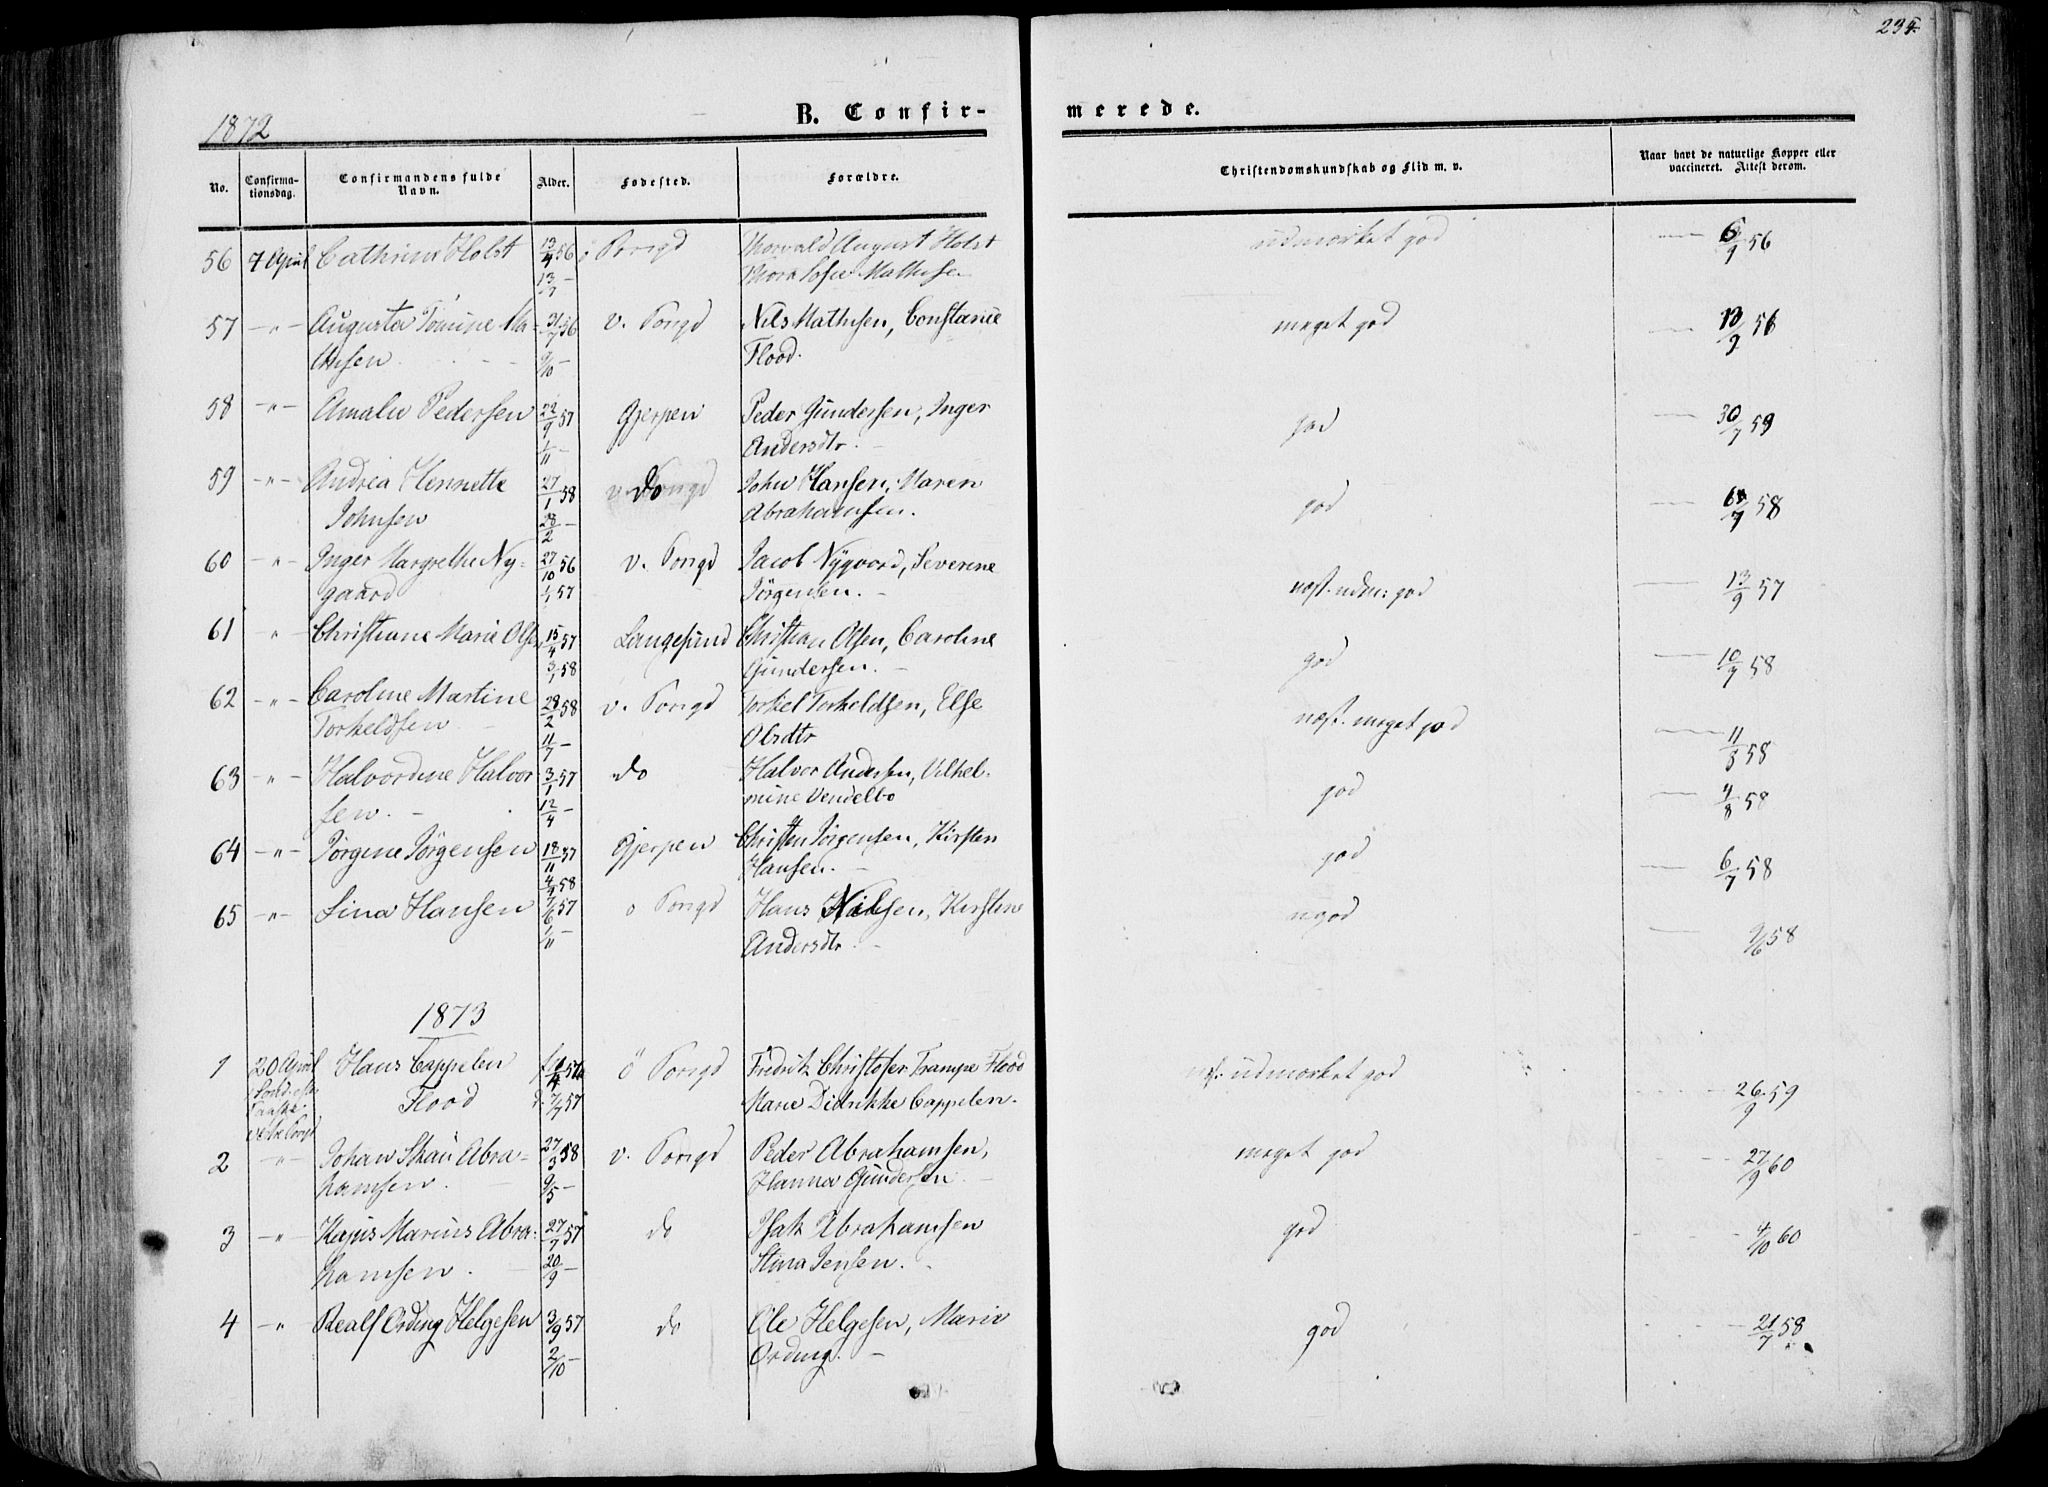 234.
1872
B. Confir-
merede.
No.
Confirma-
tionsdag.
Confirmandens fulde
Navn.
Alder.
Fødested.
Forældre.
Christendomskundskab og Flid m. v.
Naar havt de naturlige Kopper eller
vaccineret. Attest derom.
56 7 April Cathrine Holst 13/4 56 ö Porsgd Thorvald August Holst udmærket god 6/9 56
13/7 – Thora Sofie Mathisen
57 –„– Augusta Tomine Ma- 31/7 56 v. Porsgd Nils Mathisen, Constance meget god 13/9 56
thisen. 9/10 – Flood.
58 –„– Amalie Pedersen 22/9 57 Gjerpen Peder Gundersen, Inger god 30/7 59
1/11 – Andersdtr. –
59 –„– Andrea Hennette 27/1 58 do John Hansen, Maren god 7 58
Johnsen 28/2 – Abrahamsen.
60 –„– Inger Margrethe Ny- 27/10 56 v. Porsgd Jacob Nygaard, Severine næst. udm: god 13/9 57
gaard 1/1 57 Jörgensen. –
61 „ Christiane Marie Olsen 15/4 57 Langesund Christian Olsen, Caroline god 10/7 58
3/1 58 Gundersen. –
62 –„– Caroline Martine 28/2 58 v. Porsgd Torkel Torkeldsen, Else næst. meget god 11/8 58
Torkeldsen. 11/7 – Olsdtr
63 –„– Halvordine Halvor 3/1 57 do Halvor Andersen, Vilhel- god 4/8 58
sen. – 12/4 – mine Vendelbo
64 –„– Jörgine Jörgensen 18/11 57 Gjerpen Christen Jörgensen, Kirsten god 6/7 58
4/4 58 Hansen. –
65 –„– Lina Hansen 7/6 57 ö Porsgd Hans Nilsen, Kirstine mgod 9/6 58
1/11 – Andersdtr. –
1873
1 20 April Hans Cappelen ö Porsgd Fredrik Christofer Trampe Flood næst. udmærket god 26/9 59
1 Sönd. efter Flood d. 7/7 57 Marie Didrikke Cappelen.
Paaske.
vestre Porsgd
2 –„– Johan Skau Abra- 27/3 58 v. Porsgd Peder Abrahamsen, meget god 27/9 60
hamsen. 9/5 – Hanna Gundersen. –
3 –„– Kajus Marius Abra- 27/7 57 do Isak Abrahamsen god 4/10 60
hamsen. 20/9 – Stina Jensen.
4 –„ Realf Ording Helgesen 3/9 57 do Ole Helgesen, Marie god 21/7 58
2/10 – Ording. –